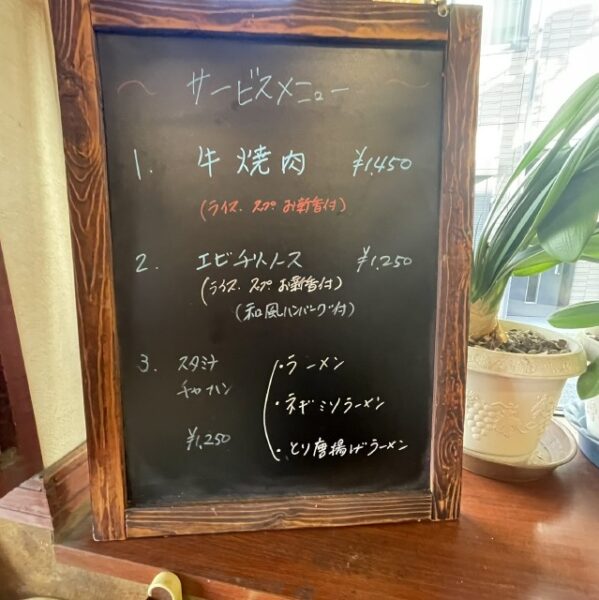 ~ サービスメニュー ~
1. 牛焼肉 ¥1,450
(ライス、スープ お新香付)
2. エビチリソース ¥1,250
(ライス、スープ お新香付)
(和風ハンバーグ付)
3. スタミナ
チャーハン
¥1,250
・ラーメン
・ネギミソラーメン
・とり唐揚げラーメン